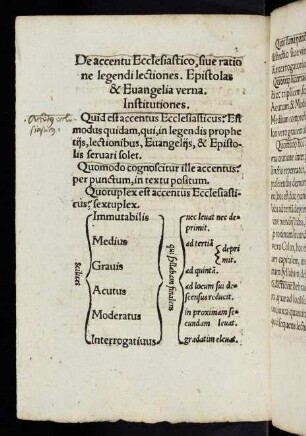 De accentu Ecclesiastico, siue ratio
ne legendi lectiones. Epistolas
& Euangelia verna.
Institutiones.
Quid est accentus Ecclesiasticus? Est
modus quidam, qui, in legendis prophe
tijs, lectionibus, Euangelijs, & Episto-
lis seruari solet.
Quomodo cognoscitur ille accentus?
per punctum, in textu positum.
Quotuplex est accentus Ecclesiasti-
cus? sextuplex.
scilicet
Immutabilis
Medius
Grauis
Acutus
Moderatus
Interrogatiuus
qui syllabam finalem
nec leuat nec de-
primit.
ad tertiã
depri
mit.
ad quintã.
ad locum sui de-
scensus reducit.
in proximam se-
cundam leuat.
gradatim eleuat.